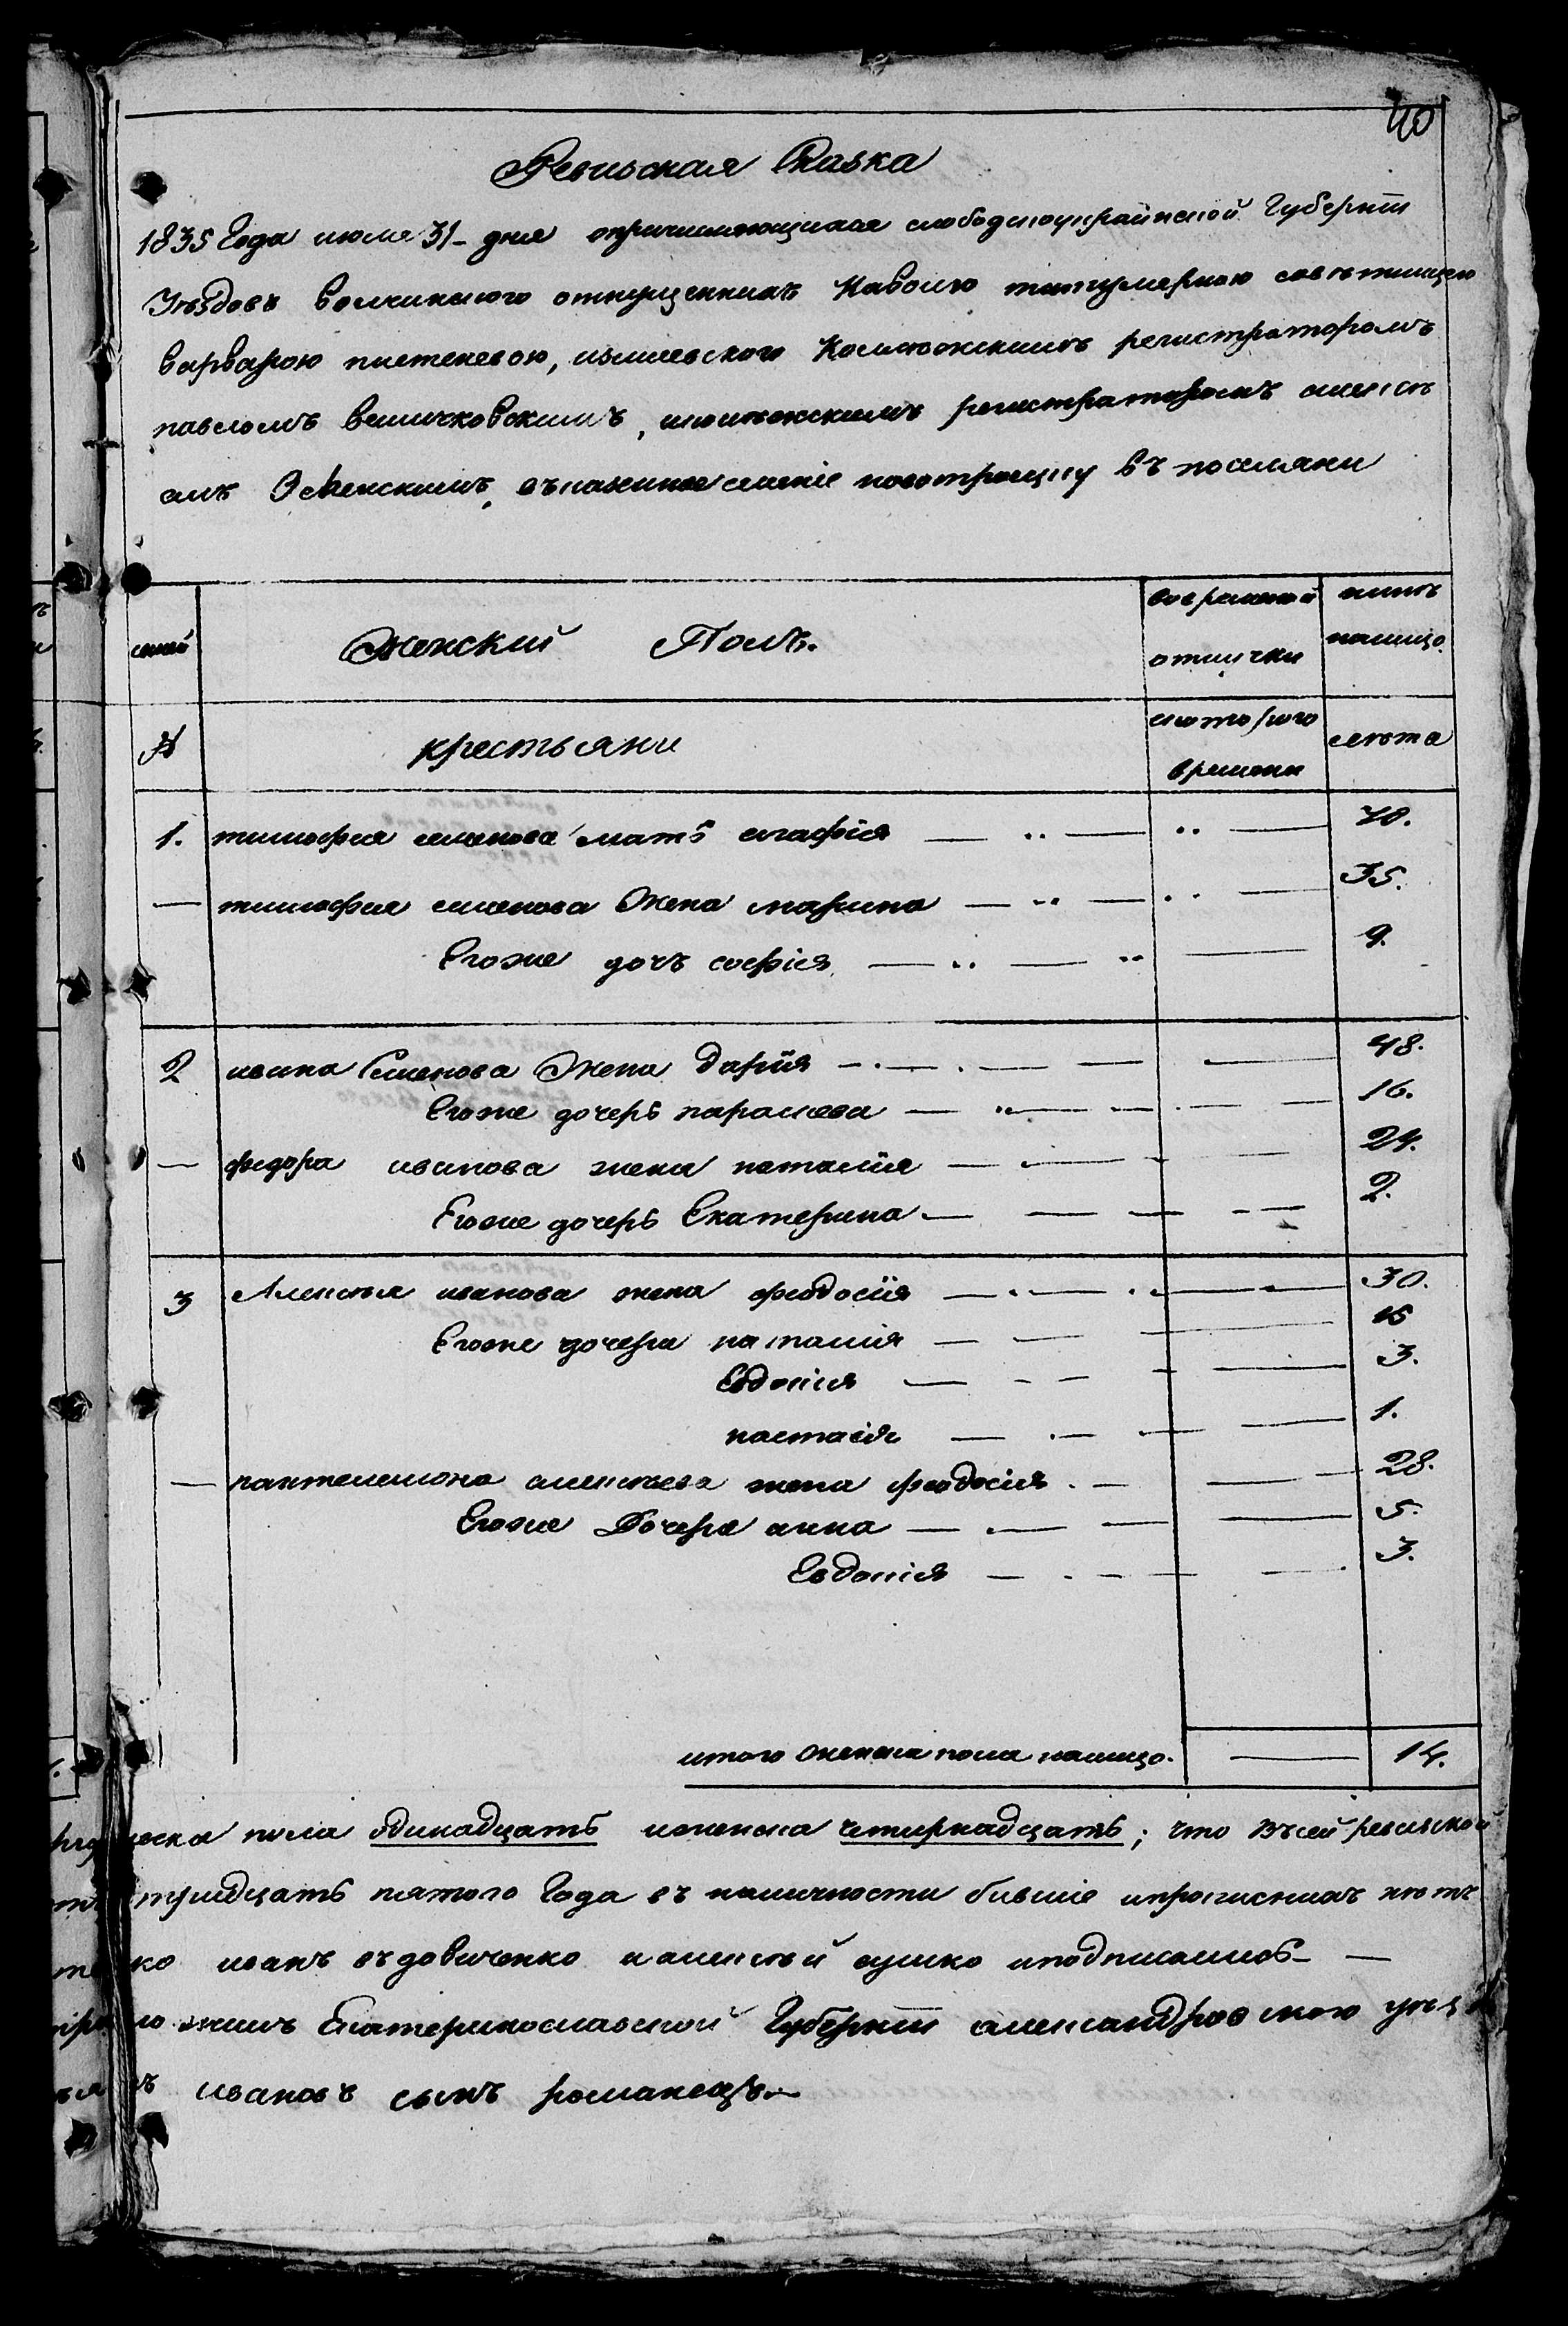 40
Ревизская Сказка
1835 Года июля 31 - дня о причисляющихся слободскоукраинской Губерніи
Уѣздовъ волчанского отпущенныхъ Наволю титулярною совѣтницею
варварою, изюмского Коллежскимъ регистраторомъ
павломъ величковскимъ, иколлежскимъ регистраторомъ алексѣ
емъ въказенное селеніе новотроицку въ поселяни
семей
Женский Полъ.
во временной отлучки
нинѣ налицо.
№
крестьяни
скоторого времени
лѣта
1. тимофея семенова мать агафія — „ — „ — 70.
— тимофея семенова Жена марина — „ — „ — 35.
Егоже дочъ софія — „ — „ — 9.
2 ивана Семенова Жена Дарія — — — 48.
Егоже дочерь параскева — „ — — — 16.
— федора иванова жена наталія — — — 24.
Егоже дочерь Екатерина — — — — 2.
3 Алексѣя иванова жена феодосія — — — 30.
Егоже дочери наталія — — —
Евдокія — — — — 3.
настасія — — — — 1.
— пантелемона алексѣева жена феодосія — — — 28.
Егоже Дочери анна — — — — 5.
Евдокія — — — — 3.
итого Женска пола налицо. — 14.
пола одинадцать иженска четирнадцать; что Въсей ревизской
тридцать пятого Года въ наличности бившіе
иванъ въдовиченко и алексѣй сушко иподписались —
Екатеринославской Губерніи александровского уѣзд
ивановъ сынъ романецъ